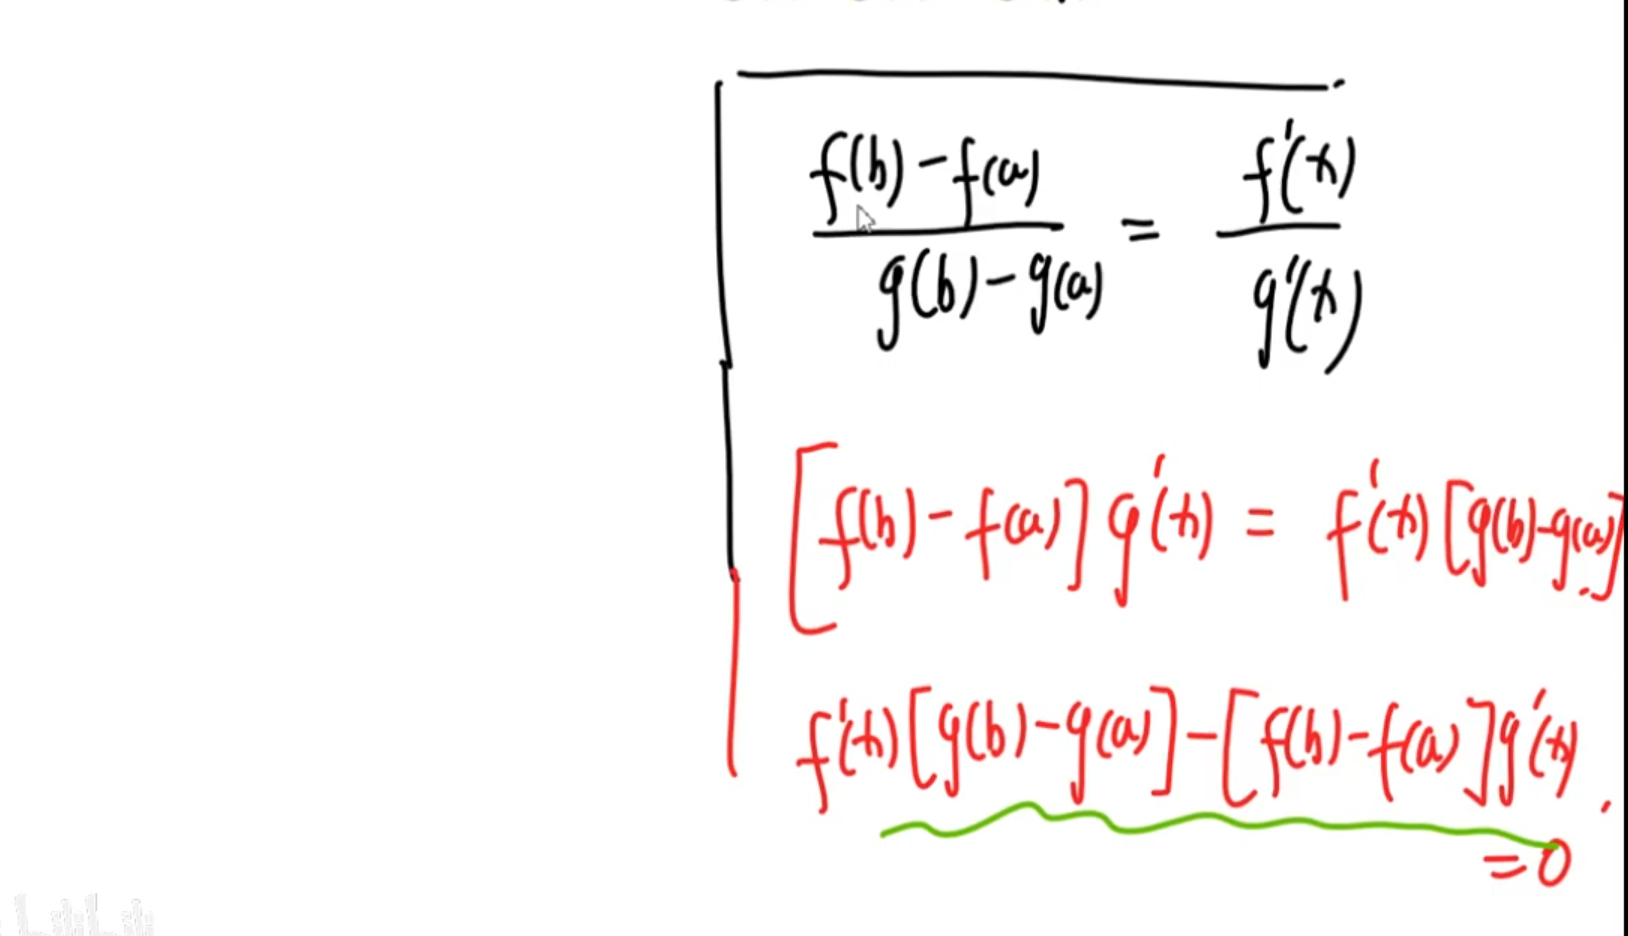 f(b)-f(a) / g(b)-g(a) = f'(x) / g'(x)
[f(b)-f(a)]g'(x) = f'(x)[g(b)-g(a)]
f'(x)[g(b)-g(a)]-[f(b)-f(a)]g'(x).
=0